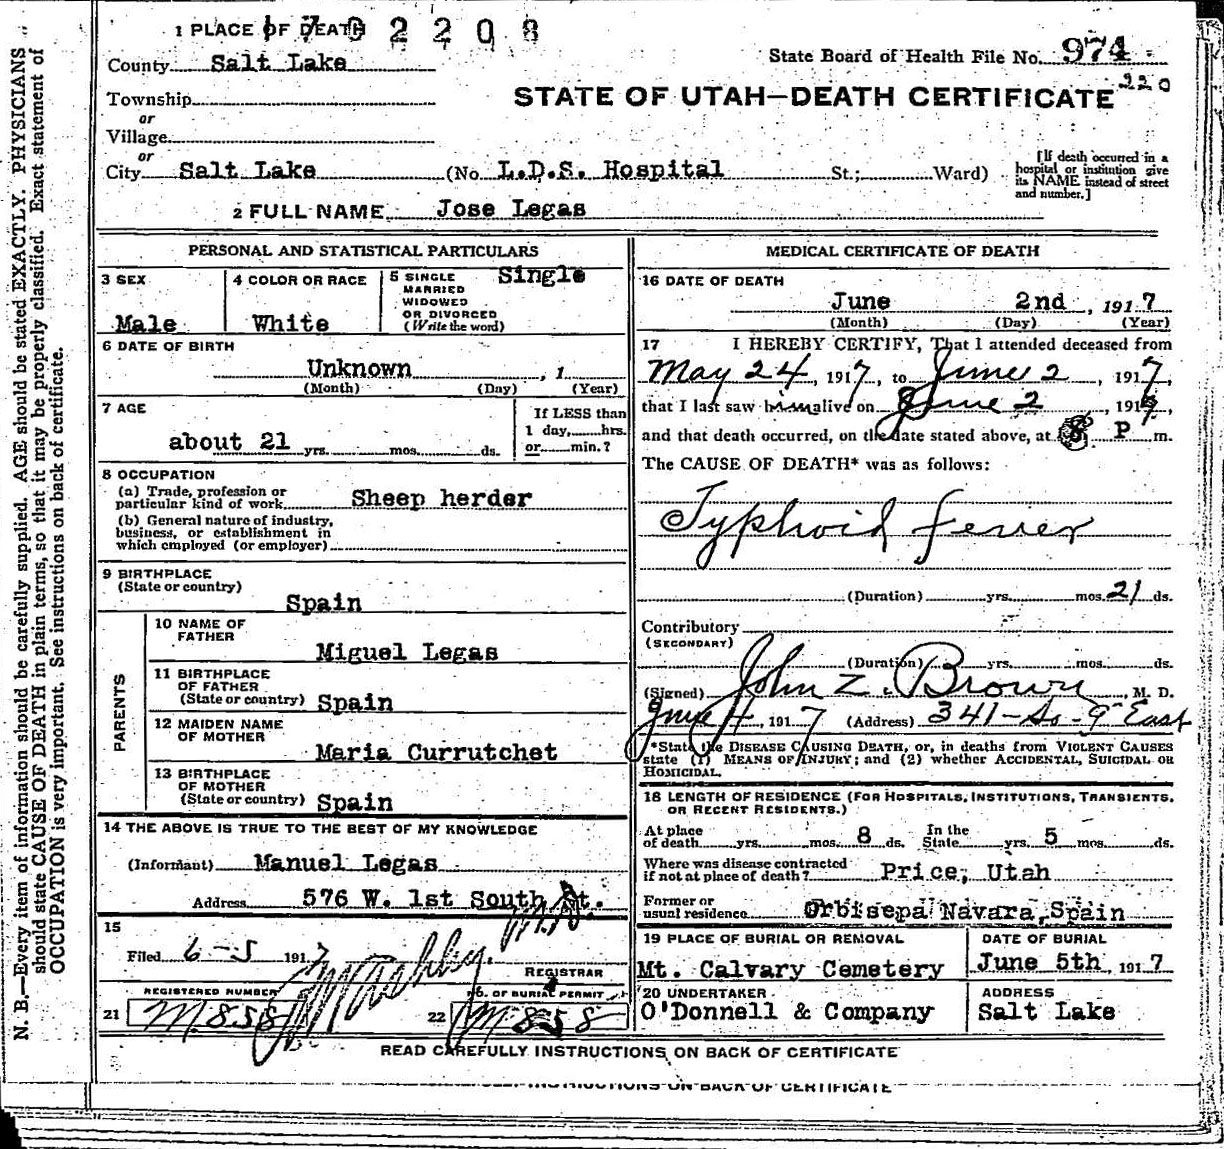 1 PLACE OF DEATH 1 7 0 2 2 0 8
County Salt Lake
State Board of Health File No. 974
220
Township
or
Village
or
STATE OF UTAH—DEATH CERTIFICATE
City Salt Lake (No L.D.S. Hospital St.; Ward)
[If death occurred in a
hospital or institution give
its NAME instead of street
and number.]
2 FULL NAME Jose Legas
PERSONAL AND STATISTICAL PARTICULARS
3 SEX
Male
4 COLOR OR RACE
White
5 SINGLE
MARRIED
WIDOWED
OR DIVORCED
(Write the word)
Single
6 DATE OF BIRTH
Unknown , 1
(Month) (Day) (Year)
7 AGE
about 21 yrs. mos. ds.
If LESS than
1 day, hrs.
or min.?
8 OCCUPATION
(a) Trade, profession or
particular kind of work Sheep herder
(b) General nature of industry,
business, or establishment in
which employed (or employer)
9 BIRTHPLACE
(State or country)
Spain
PARENTS
10 NAME OF
FATHER
Miguel Legas
11 BIRTHPLACE
OF FATHER
(State or country) Spain
12 MAIDEN NAME
OF MOTHER
Maria Currutchet
13 BIRTHPLACE
OF MOTHER
(State or country) Spain
14 THE ABOVE IS TRUE TO THE BEST OF MY KNOWLEDGE
(Informant) Manuel Legas
Address 576 W. 1st South St.
15
Filed 6-5 1917
M.D.
REGISTRAR
REGISTERED NUMBER
21 M.858
NO. OF BURIAL PERMIT
22 M 858
MEDICAL CERTIFICATE OF DEATH
16 DATE OF DEATH
June 2nd , 1917
(Month) (Day) (Year)
17 I HEREBY CERTIFY, That I attended deceased from
May 24, 1917, to June 2, 1917,
that I last saw him alive on June 2, 1917
and that death occurred, on the date stated above, at 8 P m.
The CAUSE OF DEATH* was as follows:
Typhoid fever
(Duration) yrs. mos. 21 ds.
Contributory
(SECONDARY)
(Duration) yrs. mos. ds.
(Signed) John Z. Brown, M. D.
June 4, 1917 (Address) 341-So-9 East
*State the DISEASE CAUSING DEATH, or, in deaths from VIOLENT CAUSES
state (1) MEANS OF INJURY; and (2) whether ACCIDENTAL, SUICIDAL OR
HOMICIDAL.
18 LENGTH OF RESIDENCE (FOR HOSPITALS, INSTITUTIONS, TRANSIENTS,
OR RECENT RESIDENTS.)
At place
of death yrs. mos. 8 ds. In the
State yrs. 5 mos. ds.
Where was disease contracted
if not at place of death? Price, Utah
Former or
usual residence Orbisepa Navara, Spain
19 PLACE OF BURIAL OR REMOVAL
Mt. Calvary Cemetery
DATE OF BURIAL
June 5th, 1917
20 UNDERTAKER
O'Donnell & Company
ADDRESS
Salt Lake
READ CAREFULLY INSTRUCTIONS ON BACK OF CERTIFICATE
INSTRUCTIONS ON BACK OF CERTIFICATE
N. B.—Every item of information should be carefully supplied. AGE should be stated EXACTLY. PHYSICIANS
should state CAUSE OF DEATH in plain terms, so that it may be properly classified. Exact statement of
OCCUPATION is very important. See instructions on back of certificate.